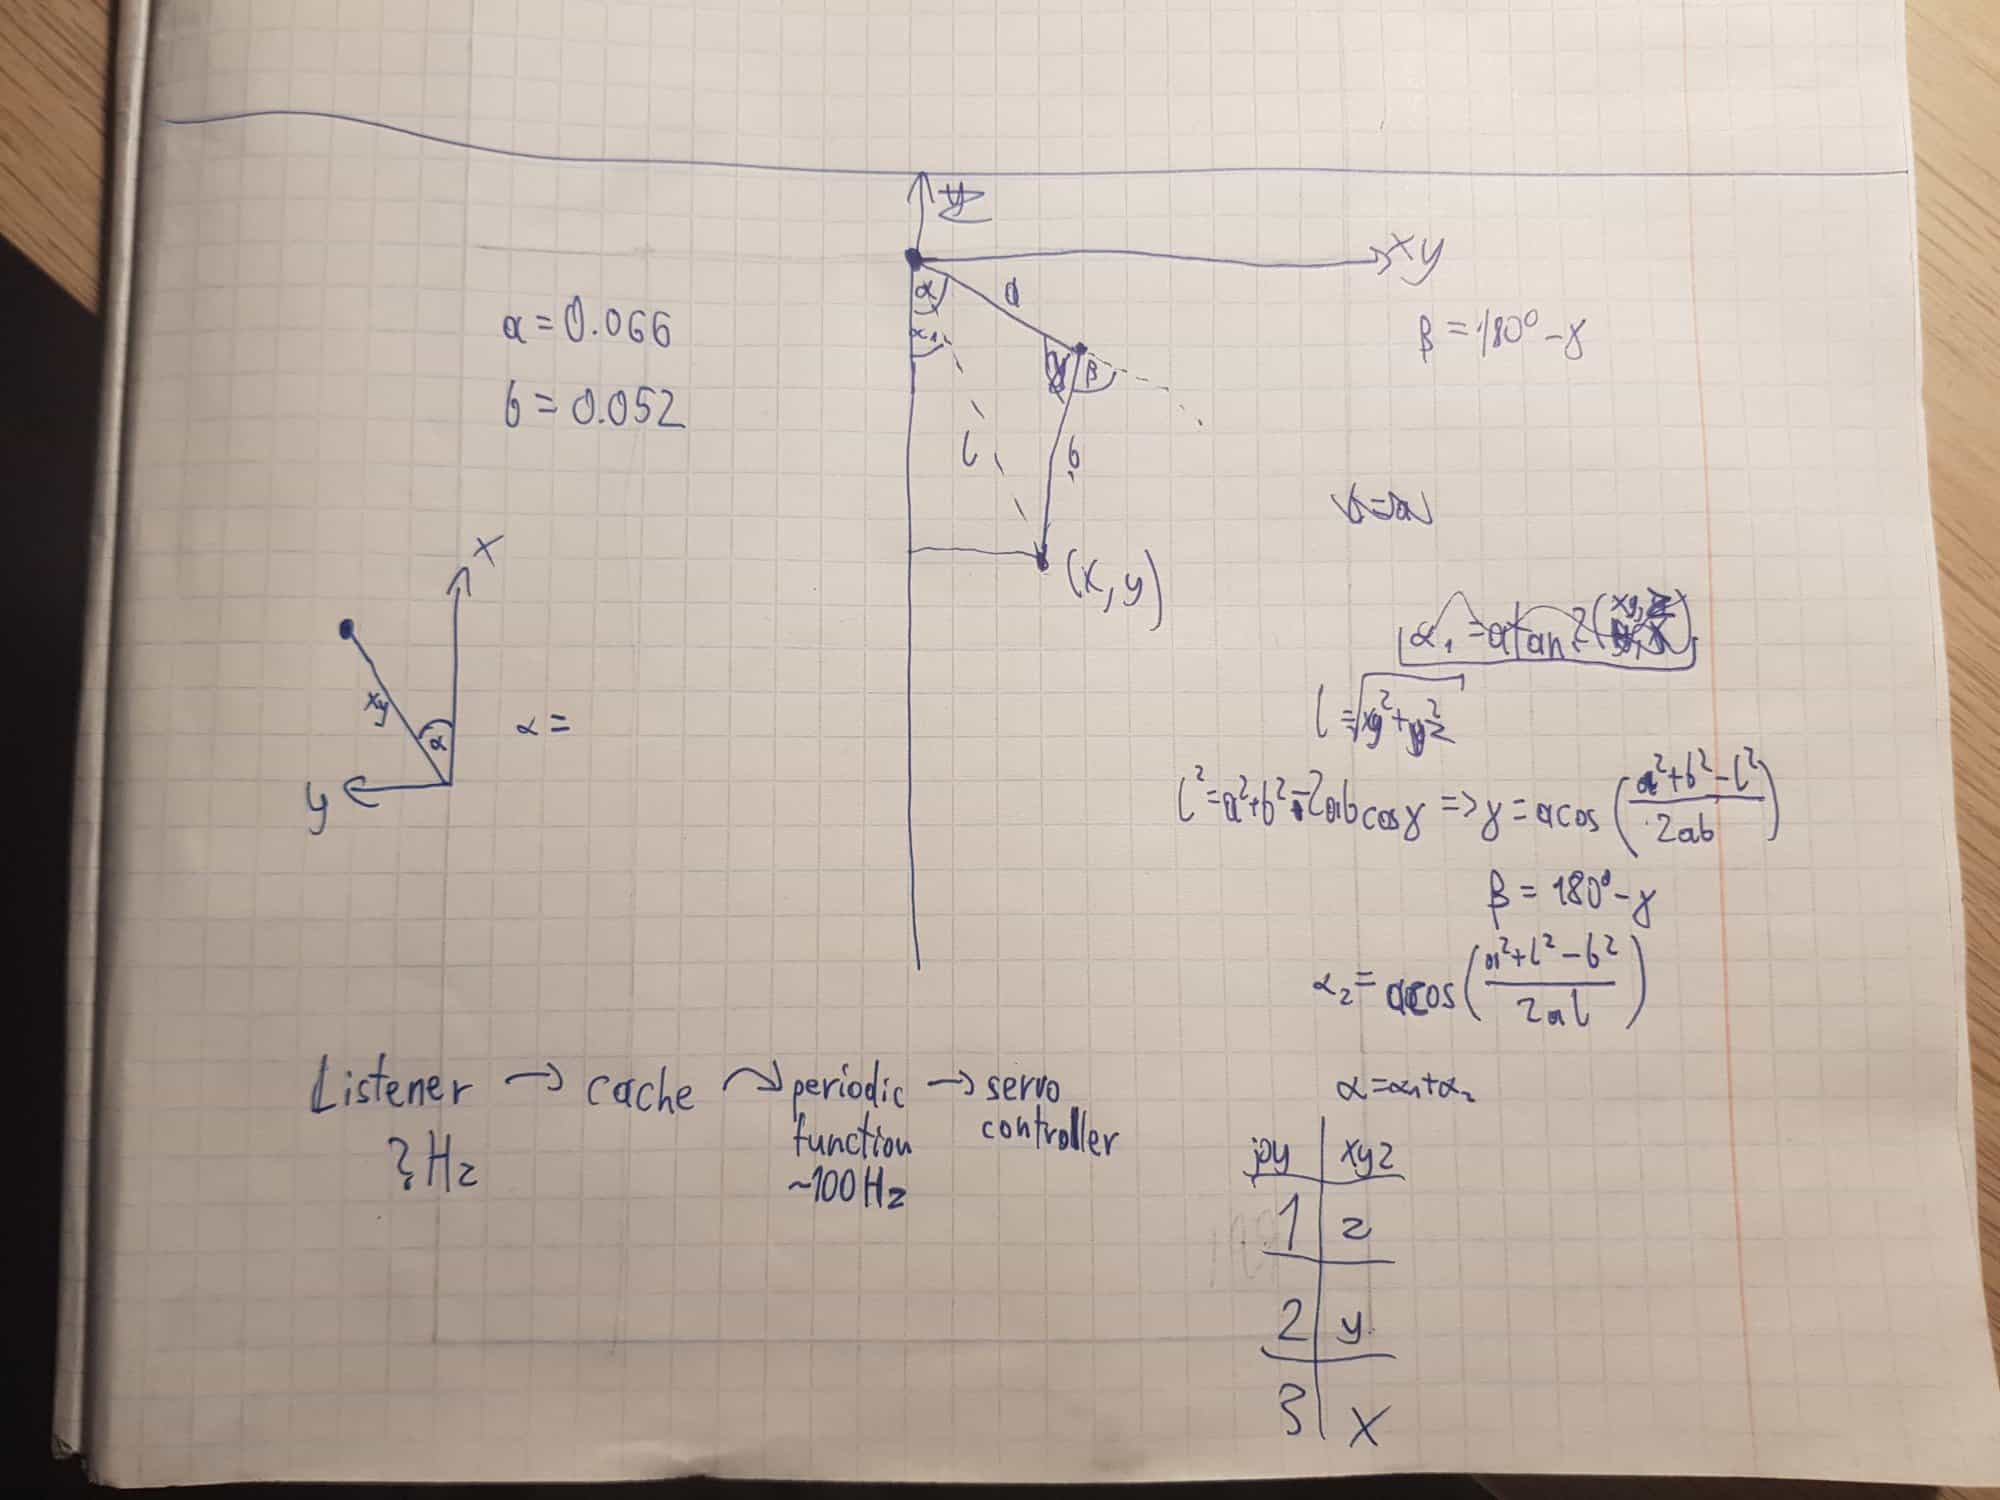 xy
α
a
α₁
γ
β
l
b
(x, y)
a = 0.066
b = 0.052
β = 180° - γ
x
xy
α
y
α =
α₁ = atan2(xy, z)
l = √(xy² + z²)
l² = a² + b² - 2ab cos γ => γ = acos((a² + b² - l²) / 2ab)
β = 180° - γ
α₂ = acos((a² + l² - b²) / 2al)
α = α₁ + α₂
Listener → cache → periodic → servo
function controller
? Hz ~100 Hz
joy | xyz
1 | z
2 | y
3 | x